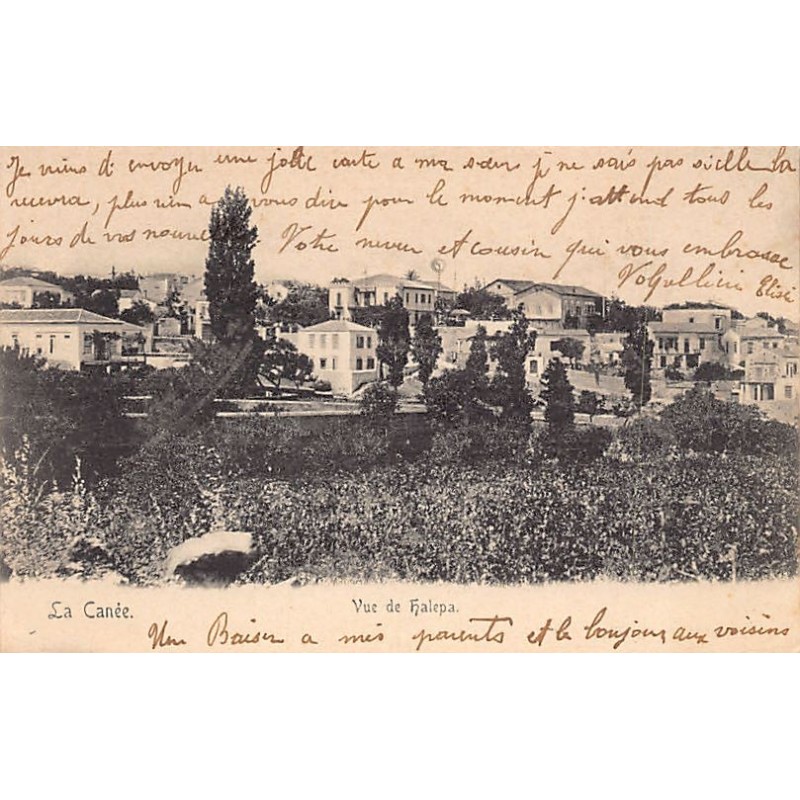 Je viens d envoyer une jolie carte a ma sœur je ne sais pas si elle la
recevra, plus rien a vous dire pour le moment j'attend tous les
jours de vos nouvelles
Votre neveu et cousin qui vous embrasse
Elisé
La Canée.
Vue de Halepa.
Un Baiser a mes parents et le bonjour aux voisins